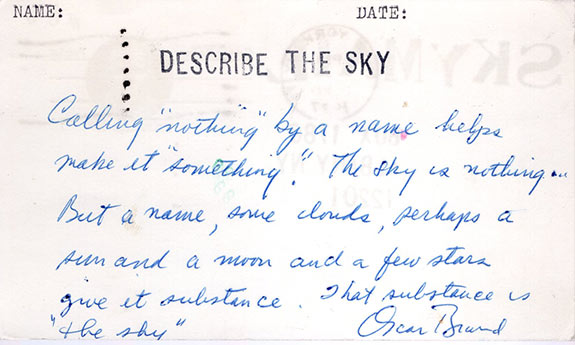 NAME: DATE:
DESCRIBE THE SKY
Calling "nothing" by a name helps
make it "something." The sky is nothing...
But a name, some clouds, perhaps a
sun and a moon and a few stars
give it substance. That substance is
"the sky" Oscar Brand